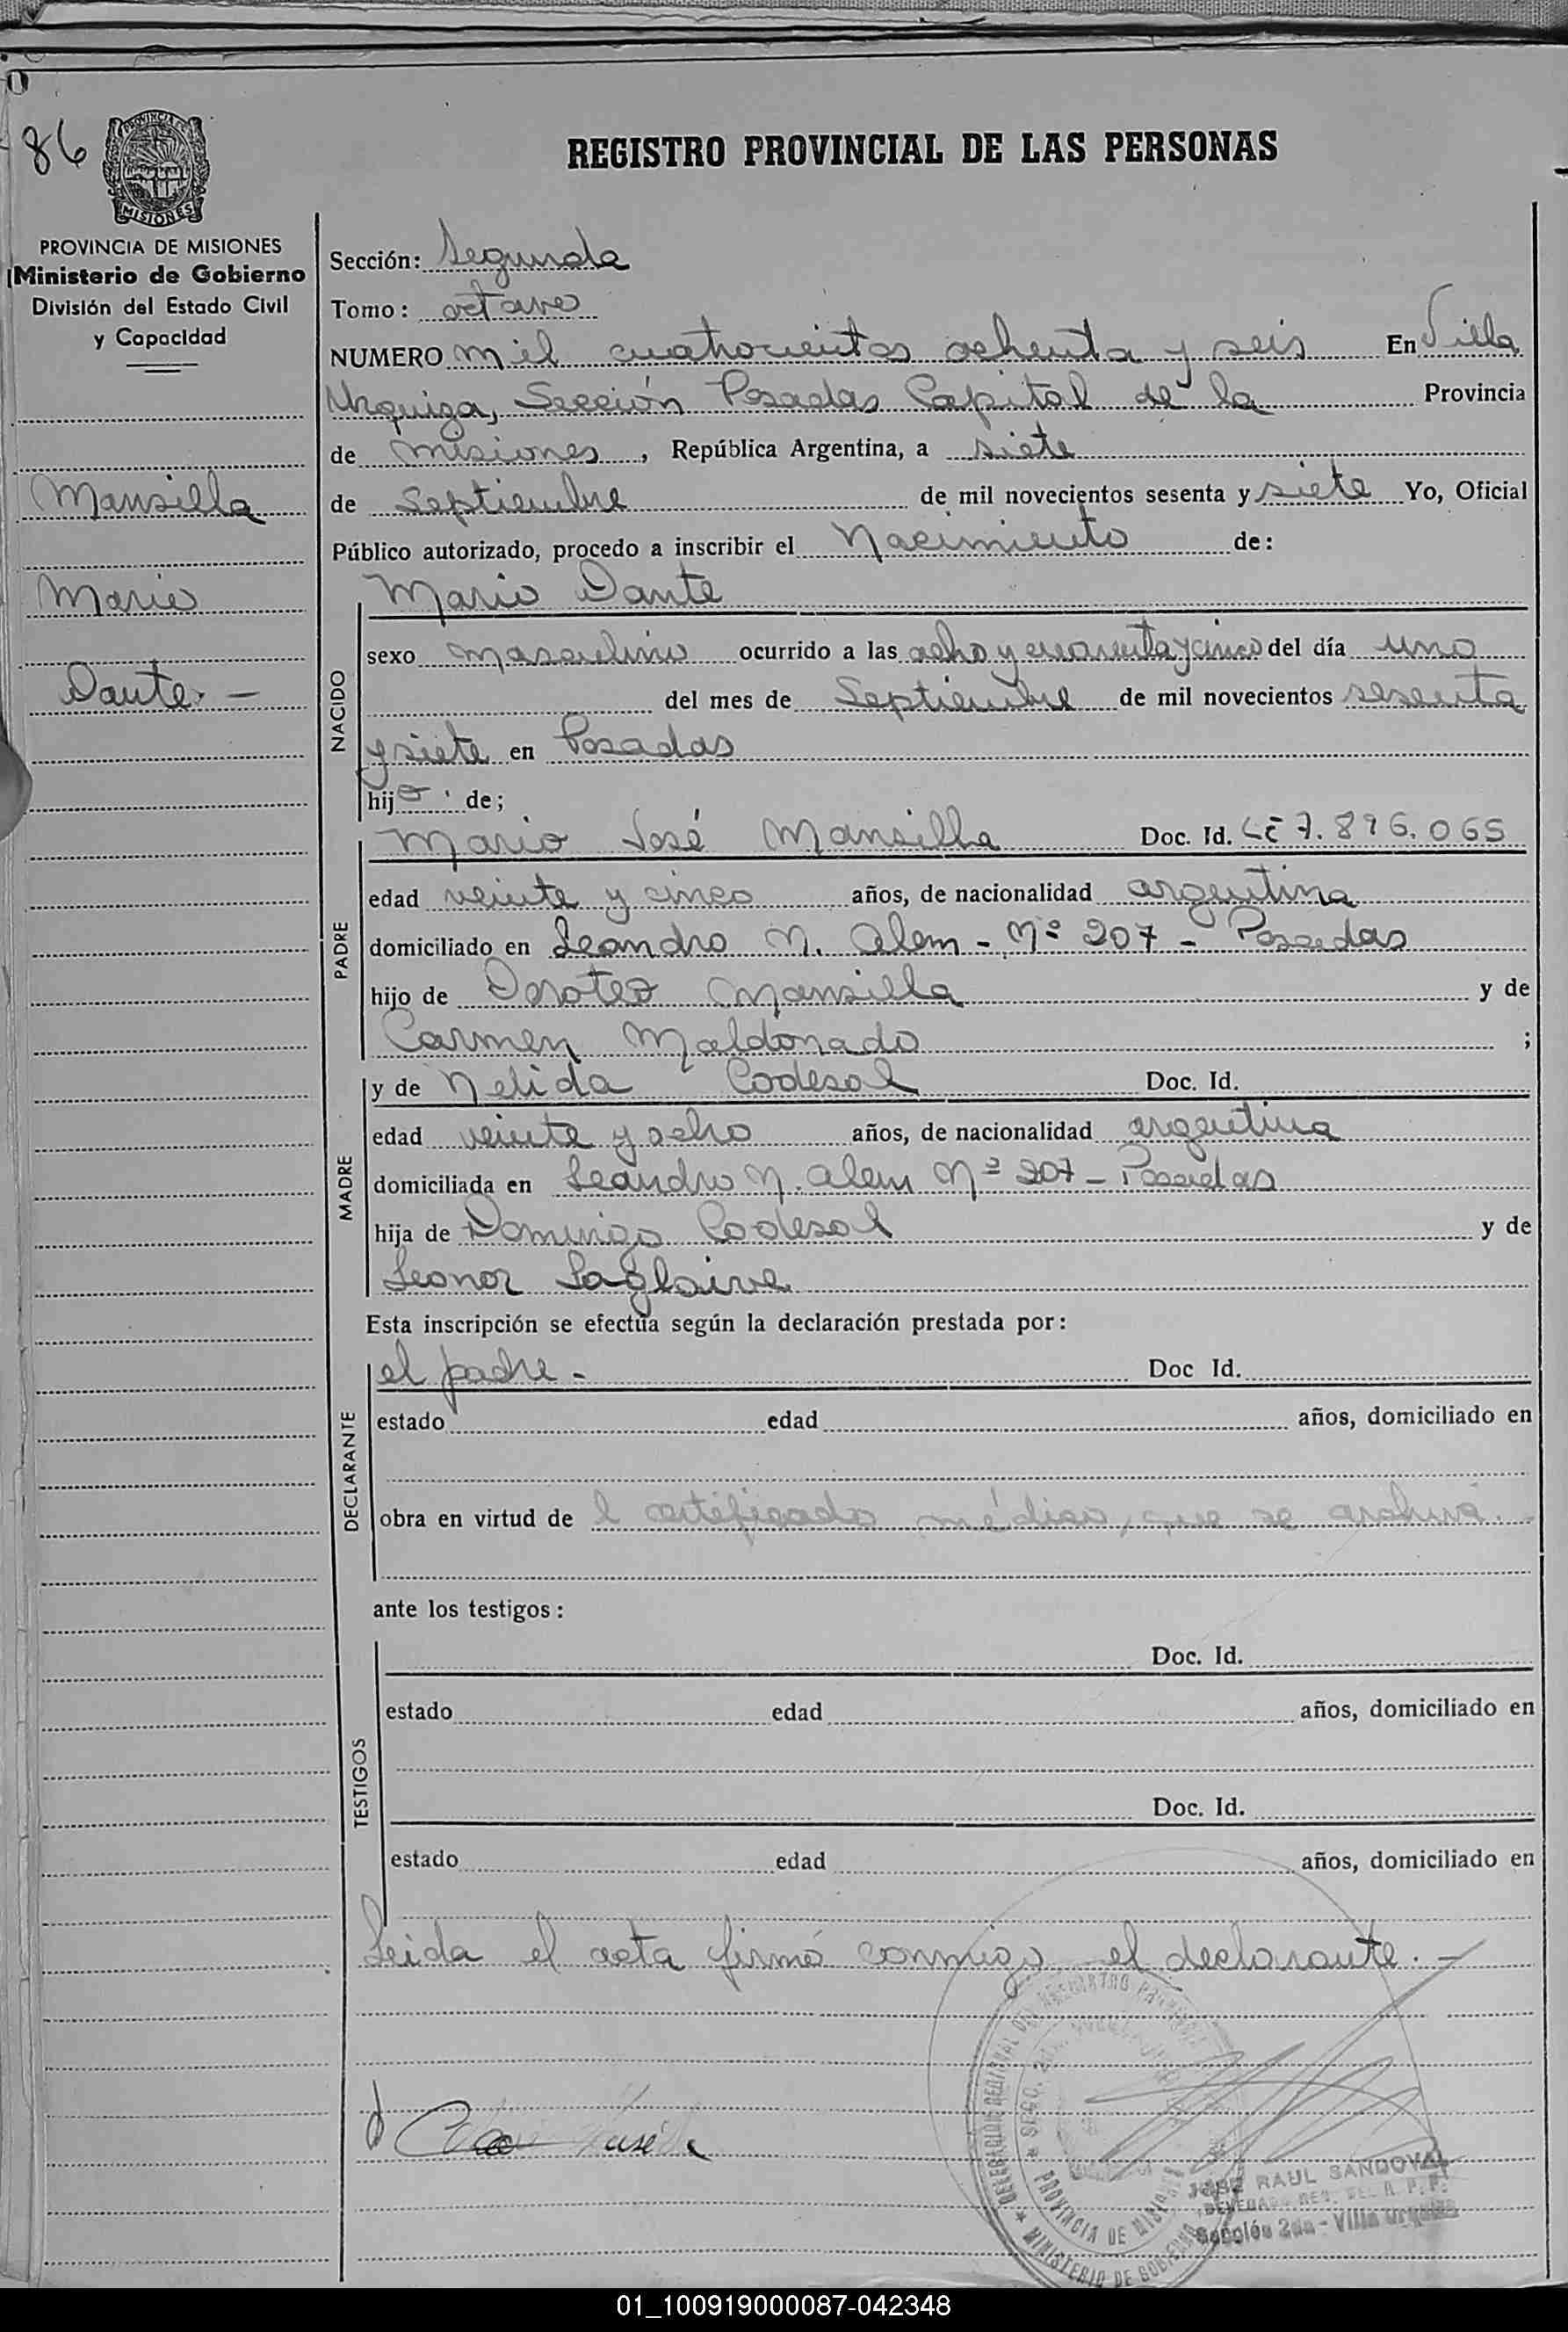 86
PROVINCIA DE
MISIONES
REGISTRO PROVINCIAL DE LAS PERSONAS
PROVINCIA DE MISIONES
Ministerio de Gobierno
División del Estado Civil
y Capacidad
Mansilla
Mario
Dante. —
Sección: Segunda
Tomo: octavo
NUMERO mil cuatrocientos ochenta y seis En Villa
Urquiza, Sección Posadas Capital de la Provincia
de Misiones, República Argentina, a siete
de Septiembre de mil novecientos sesenta y siete Yo, Oficial
Público autorizado, procedo a inscribir el Nacimiento de:
NACIDO
Mario Dante
sexo masculino ocurrido a las ocho y cuarenta y cinco del día uno
del mes de Septiembre de mil novecientos sesenta
y siete en Posadas
hijo de;
PADRE
Mario José Mansilla Doc. Id. LE 7.896.065
edad veinte y cinco años, de nacionalidad argentina
domiciliado en Leandro N. Alem - Nº 207 - Posadas
hijo de Doroteo Mansilla y de
Carmen Maldonado ;
MADRE
y de Nelida Codesal Doc. Id.
edad veinte y ocho años, de nacionalidad argentina
domiciliada en Leandro N. Alem Nº 207 - Posadas
hija de Domingo Codesal y de
Leonor Laglaive
Esta inscripción se efectúa según la declaración prestada por:
DECLARANTE
el padre - Doc Id.
estado edad años, domiciliado en
obra en virtud de l certificado médico, que se archiva.
ante los testigos:
TESTIGOS
Doc. Id.
estado edad años, domiciliado en
Doc. Id.
estado edad años, domiciliado en
Leida el acta firmó conmigo el declarante. —
José
DELEGACION REGIONAL DEL REGISTRO
SECC. 2da.
PROVINCIA DE MISIONES
MINISTERIO DE GOBIERNO
RAUL SANDOVAL
Sección 2da - Villa Urquiza
01_100919000087-042348